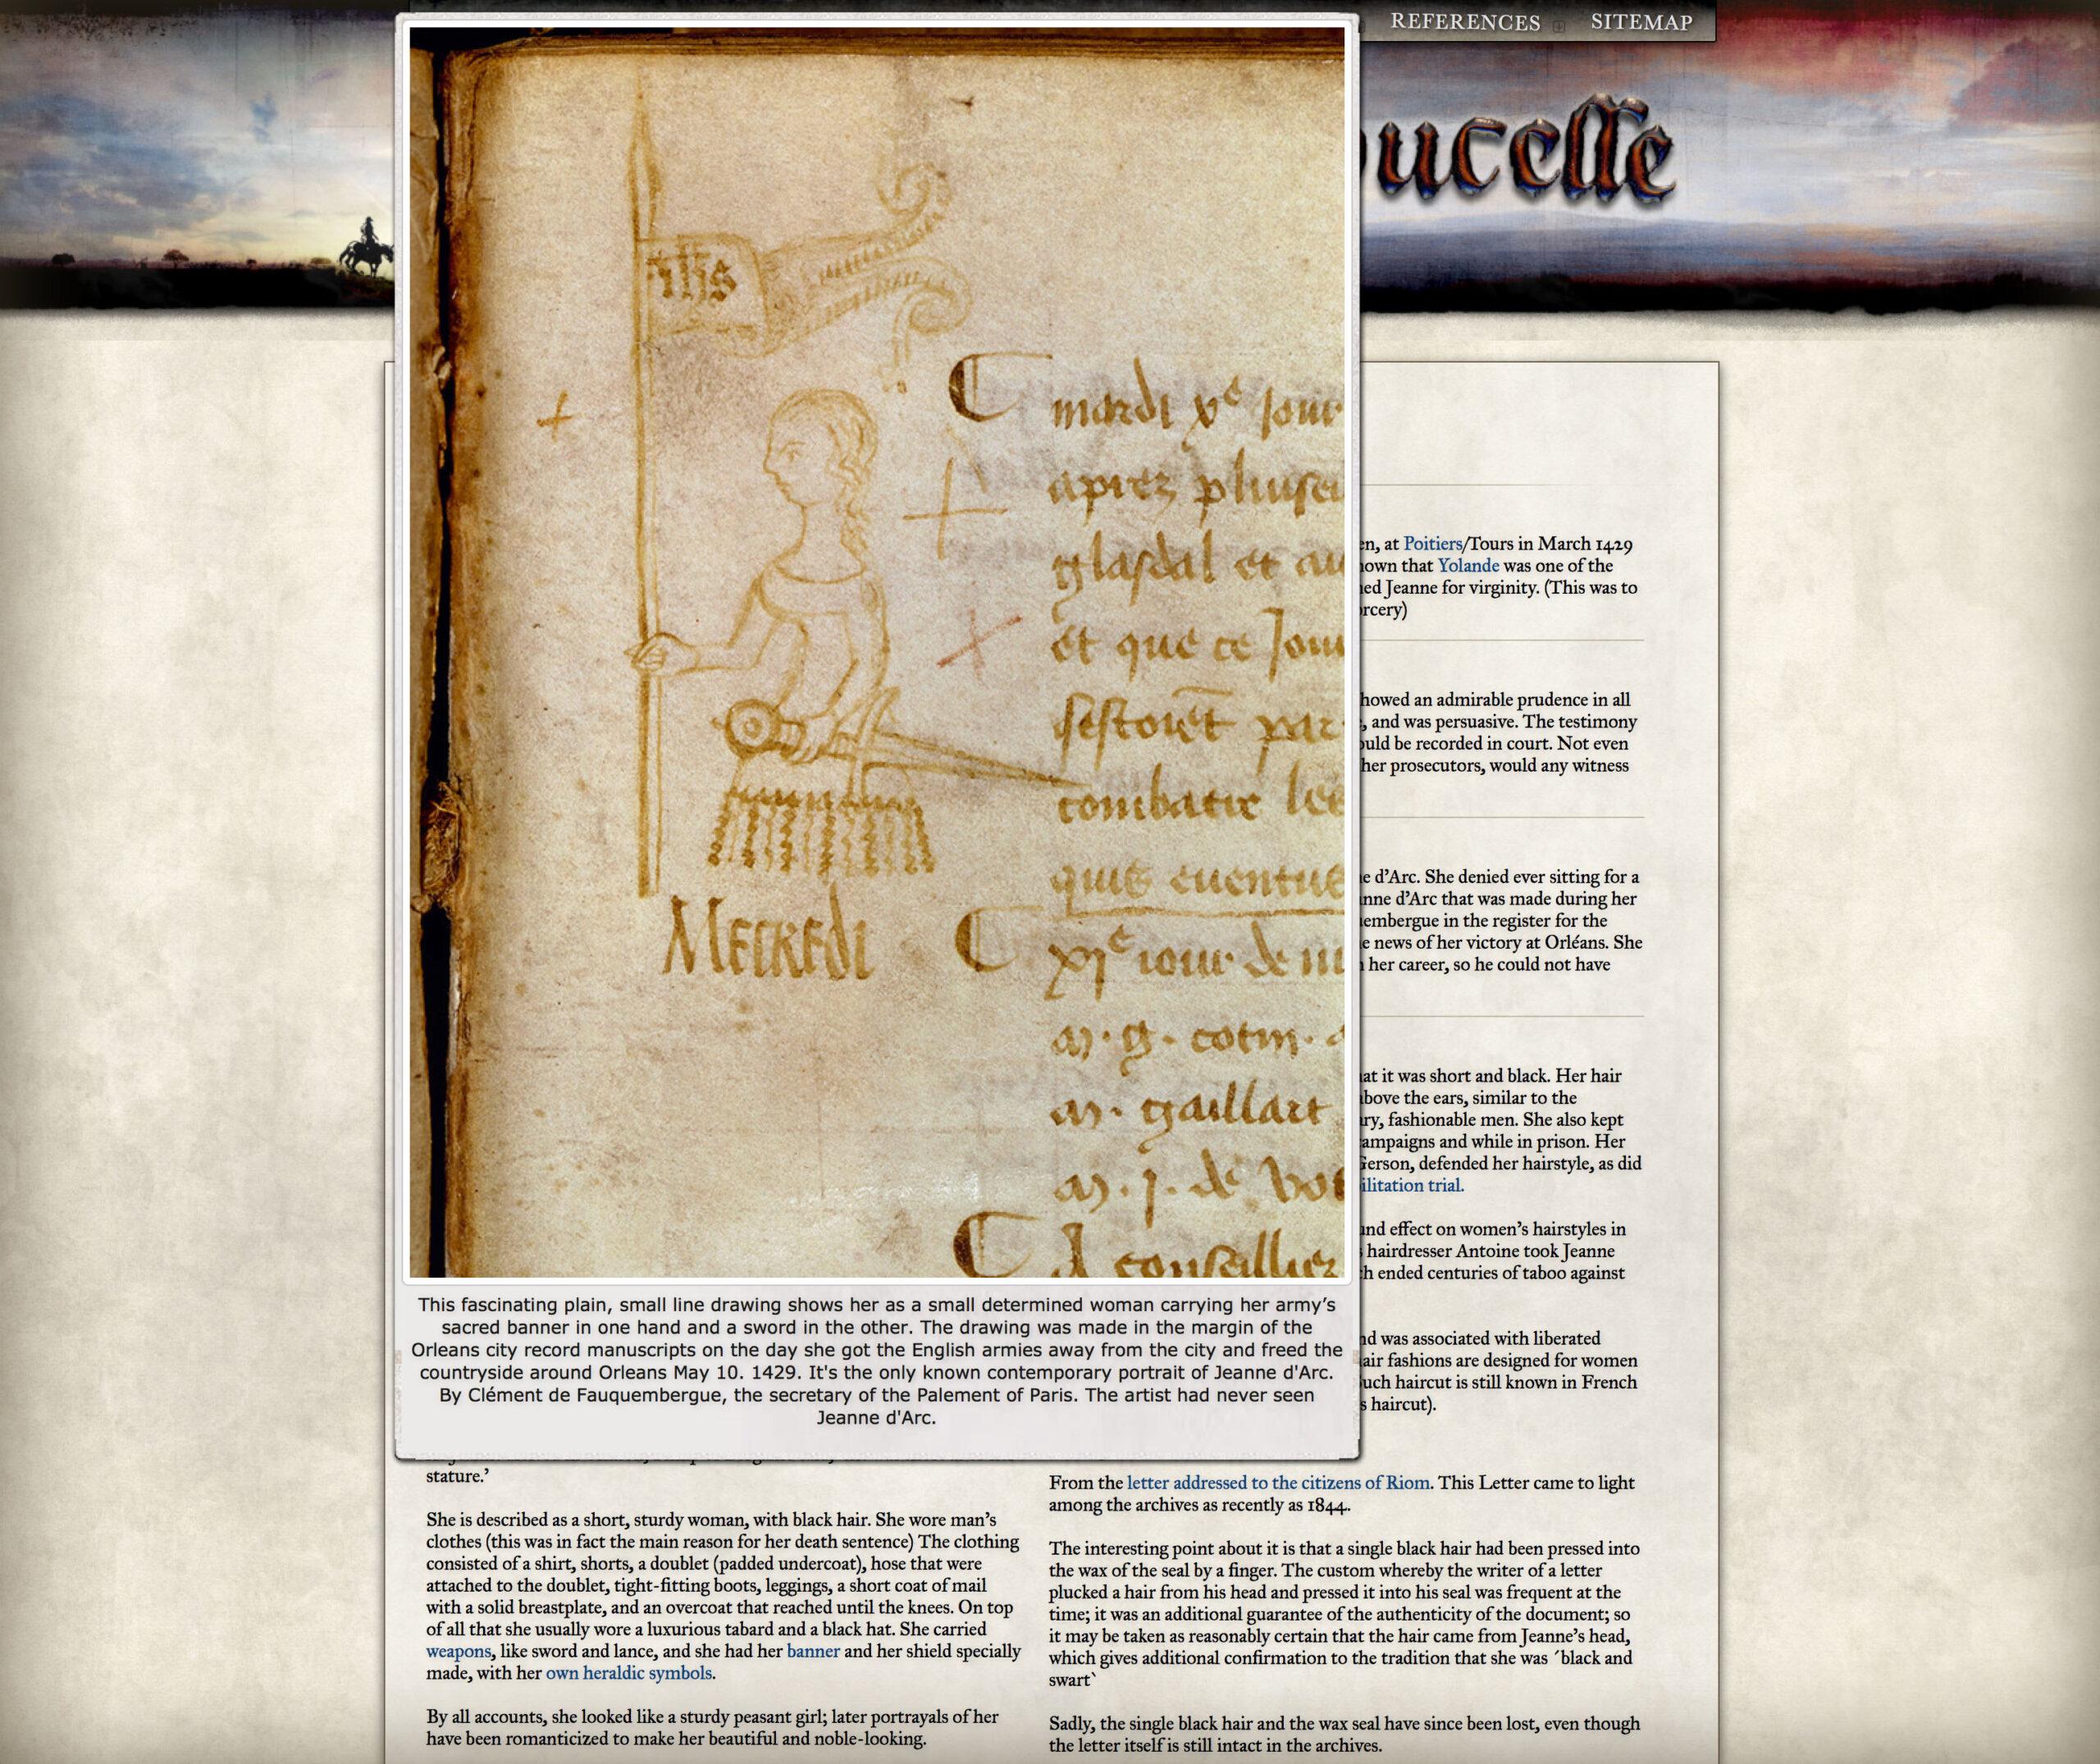 REFERENCES SITEMAP
ucelle
ihs
mardi xe jour
aprez pluise
glasdal et au
et que ce Jour
sestoiēt par
combatre les
quis euentus
MECREDI
xje iour de m
m. g. cotin.
m. gaillart
m. j. de
conseillier
This fascinating plain, small line drawing shows her as a small determined woman carrying her army’s
sacred banner in one hand and a sword in the other. The drawing was made in the margin of the
Orleans city record manuscripts on the day she got the English armies away from the city and freed the
countryside around Orleans May 10. 1429. It's the only known contemporary portrait of Jeanne d'Arc.
By Clément de Fauquembergue, the secretary of the Palement of Paris. The artist had never seen
Jeanne d'Arc.
en, at Poitiers/Tours in March 1429
own that Yolande was one of the
ed Jeanne for virginity. (This was to
rcery)
howed an admirable prudence in all
, and was persuasive. The testimony
ould be recorded in court. Not even
her prosecutors, would any witness
e d’Arc. She denied ever sitting for a
nne d’Arc that was made during her
embergue in the register for the
e news of her victory at Orléans. She
her career, so he could not have
at it was short and black. Her hair
bove the ears, similar to the
ry, fashionable men. She also kept
ampaigns and while in prison. Her
Gerson, defended her hairstyle, as did
ilitation trial.
und effect on women’s hairstyles in
hairdresser Antoine took Jeanne
h ended centuries of taboo against
nd was associated with liberated
air fashions are designed for women
uch haircut is still known in French
s haircut).
stature.’
She is described as a short, sturdy woman, with black hair. She wore man’s
clothes (this was in fact the main reason for her death sentence) The clothing
consisted of a shirt, shorts, a doublet (padded undercoat), hose that were
attached to the doublet, tight-fitting boots, leggings, a short coat of mail
with a solid breastplate, and an overcoat that reached until the knees. On top
of all that she usually wore a luxurious tabard and a black hat. She carried
weapons, like sword and lance, and she had her banner and her shield specially
made, with her own heraldic symbols.
By all accounts, she looked like a sturdy peasant girl; later portrayals of her
have been romanticized to make her beautiful and noble-looking.
From the letter addressed to the citizens of Riom. This Letter came to light
among the archives as recently as 1844.
The interesting point about it is that a single black hair had been pressed into
the wax of the seal by a finger. The custom whereby the writer of a letter
plucked a hair from his head and pressed it into his seal was frequent at the
time; it was an additional guarantee of the authenticity of the document; so
it may be taken as reasonably certain that the hair came from Jeanne’s head,
which gives additional confirmation to the tradition that she was ´black and
swart`
Sadly, the single black hair and the wax seal have since been lost, even though
the letter itself is still intact in the archives.